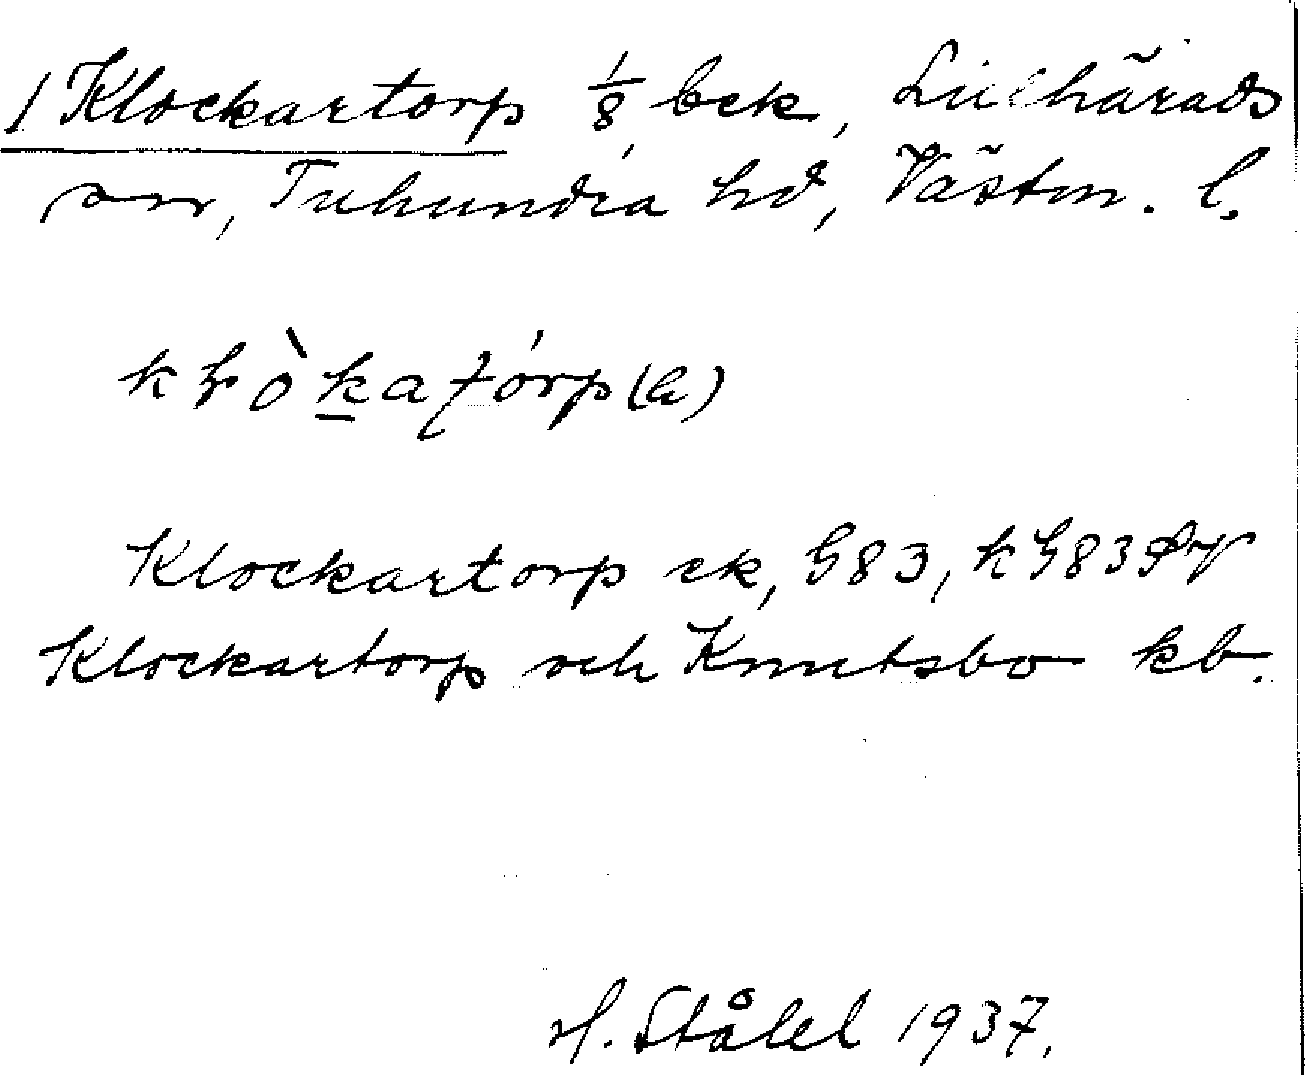 1 Klockartorp 1/8 bck, Lillhärads
sn, Tuhundra hd, Västm. l.
Klockartorp ek, G83, kG83
Klockartorp och Knutsbo kb.
H. Ståhl 1937.